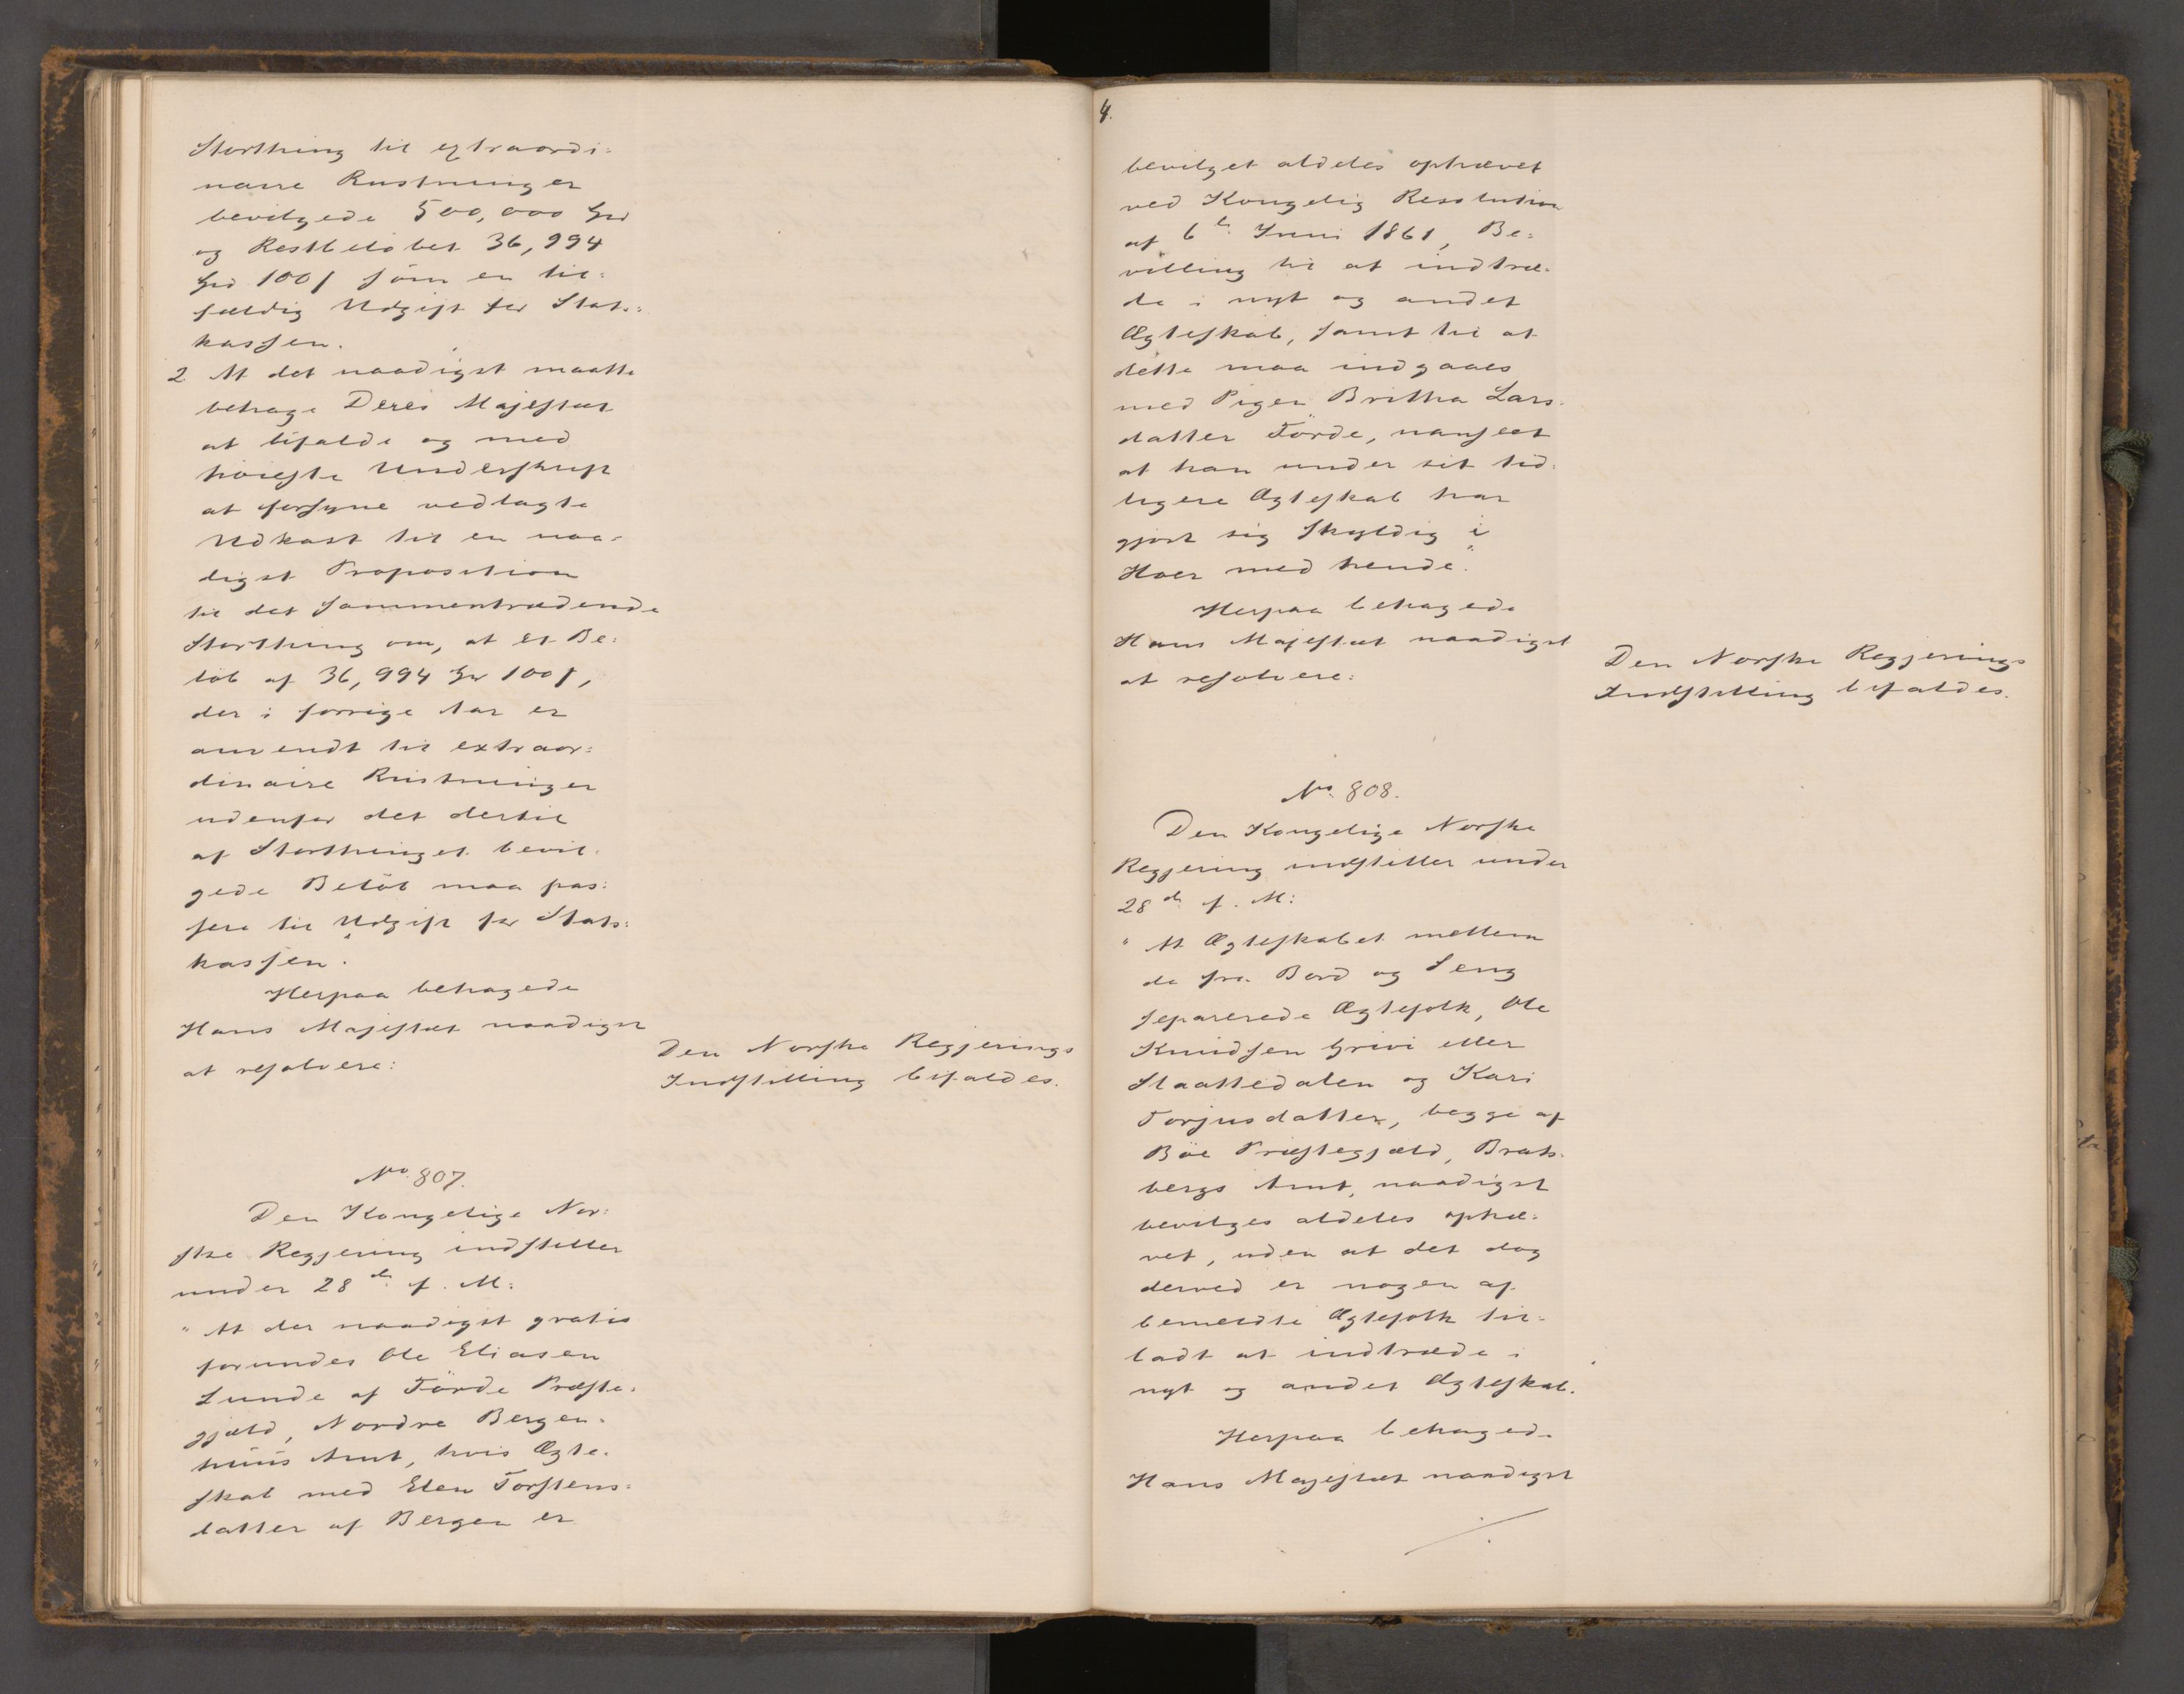 Storthing til extraordi-
naire Rustninger
bevilgede 500,000 Spd
og Restbeløbet 36,994
Spd 100 s som en til-
fældig Udgift for Stats-
kassen.
2 At det naadigst maatte
behage Deres Majestæt
at bifalde og med
høieste Underskrift
at forsyne vedlagte
Udkast til en naa-
digst Proposition
til det sammentrædende
Storthing om, at et Be-
løb af 36,994 Spd 100 s,
der i forrige Aar er
anvendt til extraor-
dinaire Rustninger
udenfor det dertil
af Storthinget bevil-
gede Beløb maa pas-
sere til Udgift for Stats-
kassen."
Herpaa behagede
Hans Majestæt naadigst
at resolvere:
Den Norske Regjerings
Indstilling bifaldes.
No. 807.
Den Kongelige Nor-
ske Regjering indstiller
under 28de f. M:
"At der naadigst gratis
forundes Ole Eliasen
Lunde af Förde Præste-
gjæld, Nordre Bergen-
huus Amt, hvis Ægte-
skab med Elen Torstens-
datter af Bergen er
4.
bevilget aldeles ophævet
ved Kongelig Resolution
af 6te Juni 1861, Be-
villing til at indtræ-
de i nyt og andet
Ægteskab, samt til at
dette maa indgaaes
med Pigen Britha Lars-
datter Förde, uanseet
at han under sit tid-
ligere Ægteskab har
gjort sig skyldig i
Hoer med hende."
Herpaa behagede
Hans Majestæt naadigst
at resolvere:
Den Norske Regjerings
Indstilling bifaldes.
No. 808.
Den Kongelige Norske
Regjering indstiller under
28de f. M:
"At Ægteskabet mellem
de fra Bord og Seng
separerede Ægtefolk, Ole
Knudsen Grivi eller
Slaattedalen og Kari
Torjusdatter, begge af
Böe Præstegjæld, Brats-
bergs Amt, naadigst
bevilges aldeles ophæ-
vet, uden at det dog
derved er nogen af
bemeldte Ægtefolk til-
ladt at indtræde i
nyt og andet Ægteskab.
Herpaa behagede
Hans Majestæt naadigst